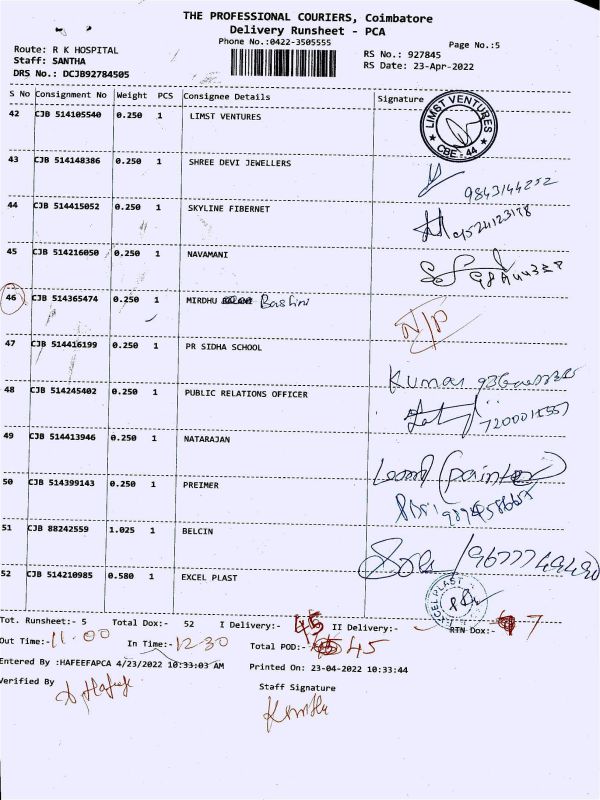 THE PROFESSIONAL COURIERS, Coimbatore
Delivery Runsheet - PCA
Phone No.:0422-3505555
Page No.:5
Route: R K HOSPITAL
Staff: SANTHA
DRS No.: DCJB92784505
RS No.: 927845
RS Date: 23-Apr-2022
S No Consignment No Weight PCS Consignee Details Signature
42 CJB 514105540 0.250 1 LIMST VENTURES LIMST VENTURES CBE-44
43 CJB 514148386 0.250 1 SHREE DEVI JEWELLERS 9843144252
44 CJB 514415052 0.250 1 SKYLINE FIBERNET
45 CJB 514216050 0.250 1 NAVAMANI
46 CJB 514365474 0.250 1 MIRDHU Bashini N/P
47 CJB 514416199 0.250 1 PR SIDHA SCHOOL Kumar
48 CJB 514245402 0.250 1 PUBLIC RELATIONS OFFICER
49 CJB 514413946 0.250 1 NATARAJAN (painter)
50 CJB 514399143 0.250 1 PREIMER
51 CJB 88242559 1.025 1 BELCIN
52 CJB 514210985 0.580 1 EXCEL PLAST EXCEL PLAST
Tot. Runsheet:- 5 Total Dox:- 52 I Delivery:- 45 II Delivery:- RTN Dox:- 7
Out Time:- 11.00 In Time:- 12.30 Total POD:- 45
Entered By :HAFEEFAPCA 4/23/2022 10:33:03 AM Printed On: 23-04-2022 10:33:44
Verified By
Staff Signature